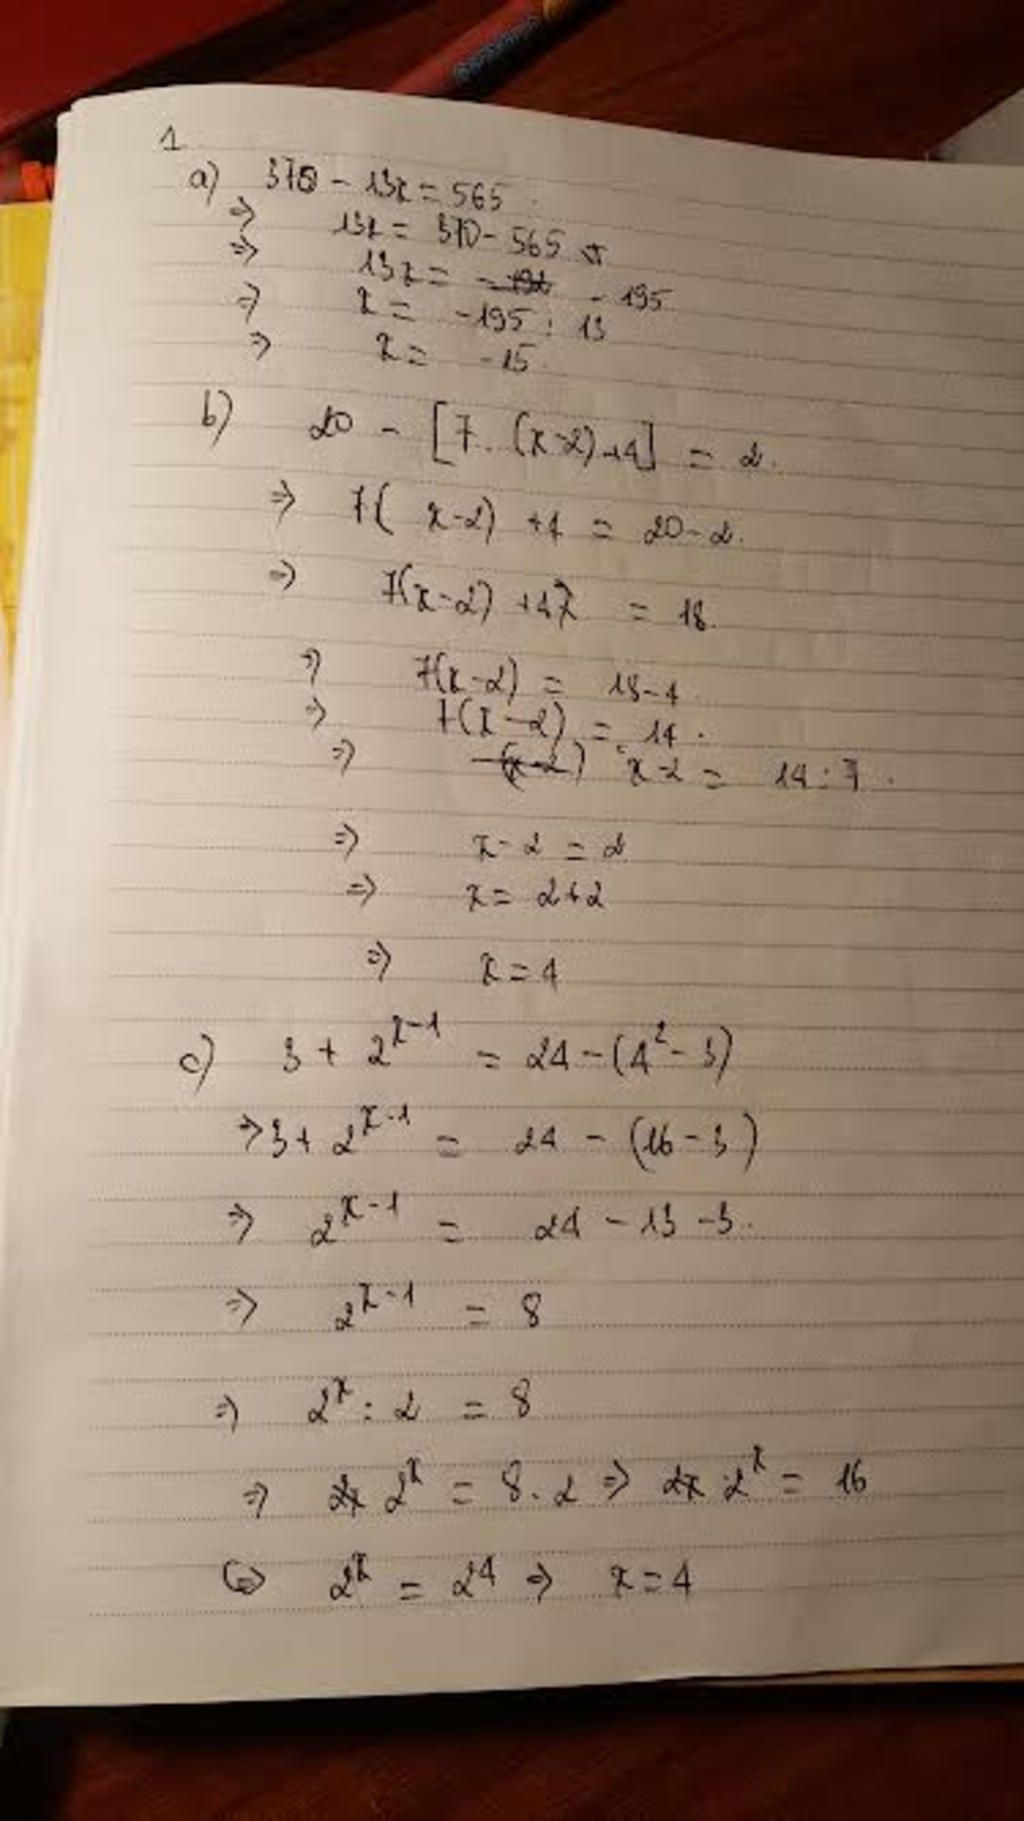 1
a) 370 - 13x = 565
=> 13x = 370 - 565
=> 13x = - 195
=> x = -195 : 13
=> x = -15
b) 20 - [7. (x-2)+4] = 2.
=> 7( x-2) +4 = 20-2.
=> 7(x-2) +4 = 18.
=> 7(x-2) = 18-4
=> 7(x-2) = 14.
=> x-2 = 14:7.
=> x-2 = 2
=> x = 2+2
=> x = 4
c) 3 + 2^{x-1} = 24 - (4² - 3)
=> 3 + 2^{x-1} = 24 - (16 - 3)
=> 2^{x-1} = 24 - 13 - 3.
=> 2^{x-1} = 8
=> 2^x : 2 = 8
=> 2^x = 8.2 => 2^x = 16
<=> 2^x = 2⁴ => x = 4